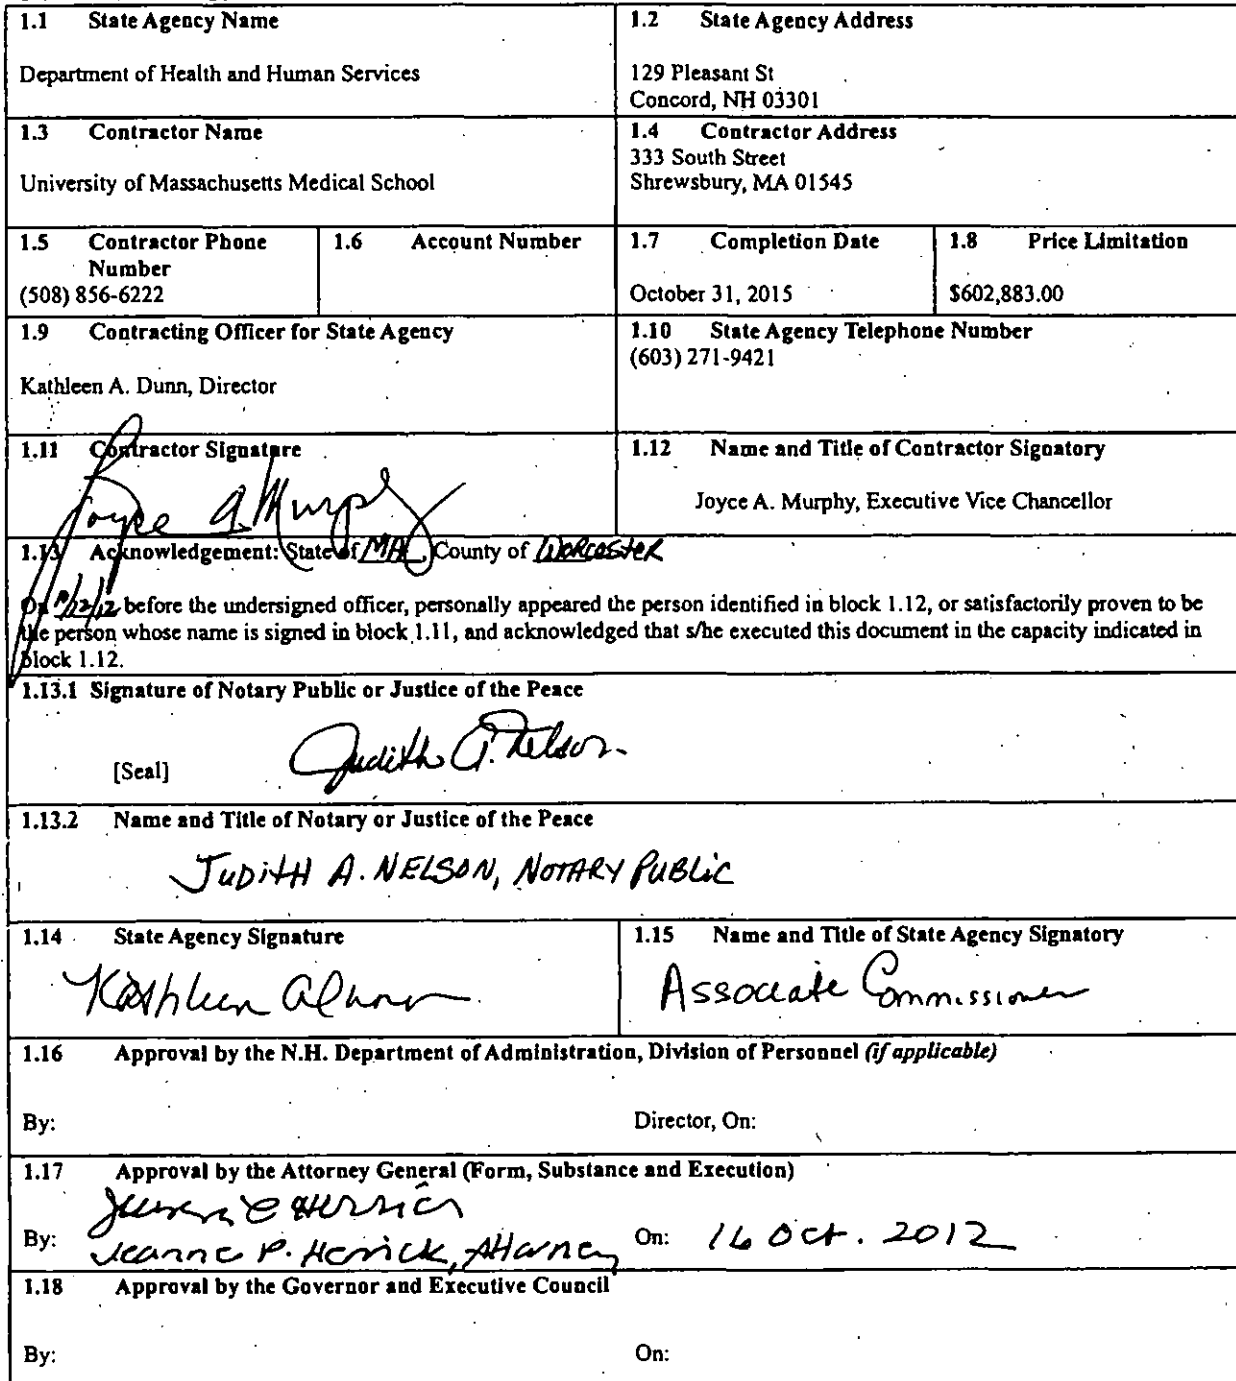 1.1 State Agency Name
Department of Health and Human Services
1.2 State Agency Address
129 Pleasant St
Concord, NH 03301
1.3 Contractor Name
University of Massachusetts Medical School
1.4 Contractor Address
333 South Street
Shrewsbury, MA 01545
1.5 Contractor Phone
Number
(508) 856-6222
1.6 Account Number
1.7 Completion Date
October 31, 2015
1.8 Price Limitation
$602,883.00
1.9 Contracting Officer for State Agency
Kathleen A. Dunn, Director
1.10 State Agency Telephone Number
(603) 271-9421
1.11 Contractor Signature
Joyce A. Murphy
1.12 Name and Title of Contractor Signatory
Joyce A. Murphy, Executive Vice Chancellor
1.13 Acknowledgement: State of MA, County of Worcester
On before the undersigned officer, personally appeared the person identified in block 1.12, or satisfactorily proven to be
the person whose name is signed in block 1.11, and acknowledged that s/he executed this document in the capacity indicated in
block 1.12.
1.13.1 Signature of Notary Public or Justice of the Peace
Judith A. Nelson
[Seal]
1.13.2 Name and Title of Notary or Justice of the Peace
JUDITH A. NELSON, NOTARY PUBLIC
1.14 State Agency Signature
Kathleen A Dunn
1.15 Name and Title of State Agency Signatory
Associate Commissioner
1.16 Approval by the N.H. Department of Administration, Division of Personnel (if applicable)
By: Director, On:
1.17 Approval by the Attorney General (Form, Substance and Execution)
By: Jeanne P. Herrick, Attorney On: 16 Oct. 2012
1.18 Approval by the Governor and Executive Council
By: On: